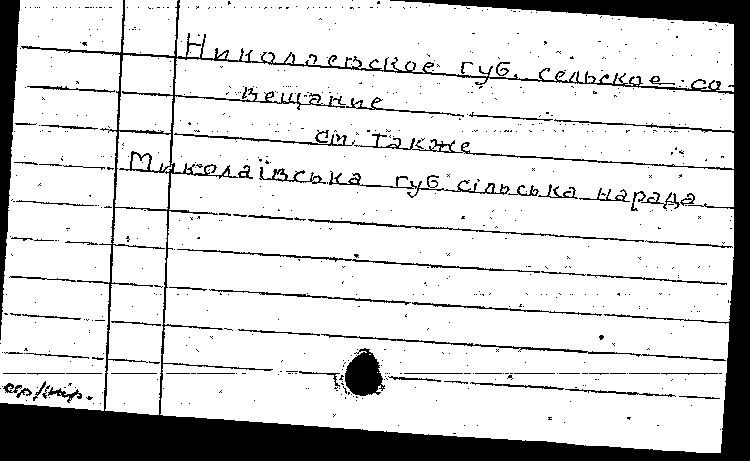 Николаевское губ. сельское со-
вещание
см. также
Миколаївська губ. сільська нарада.